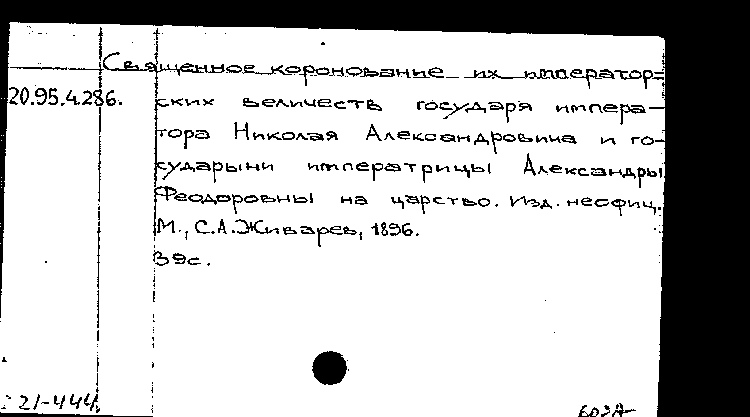 Священное коронование их император-
20.95.4.286. ских величеств государя импера-
тора Николая Александровича и го-
сударыни императрицы Александры
Феодоровны на царство. Изд. неофиц.
М., С.А.Живарев, 1896.
39с.
21-444